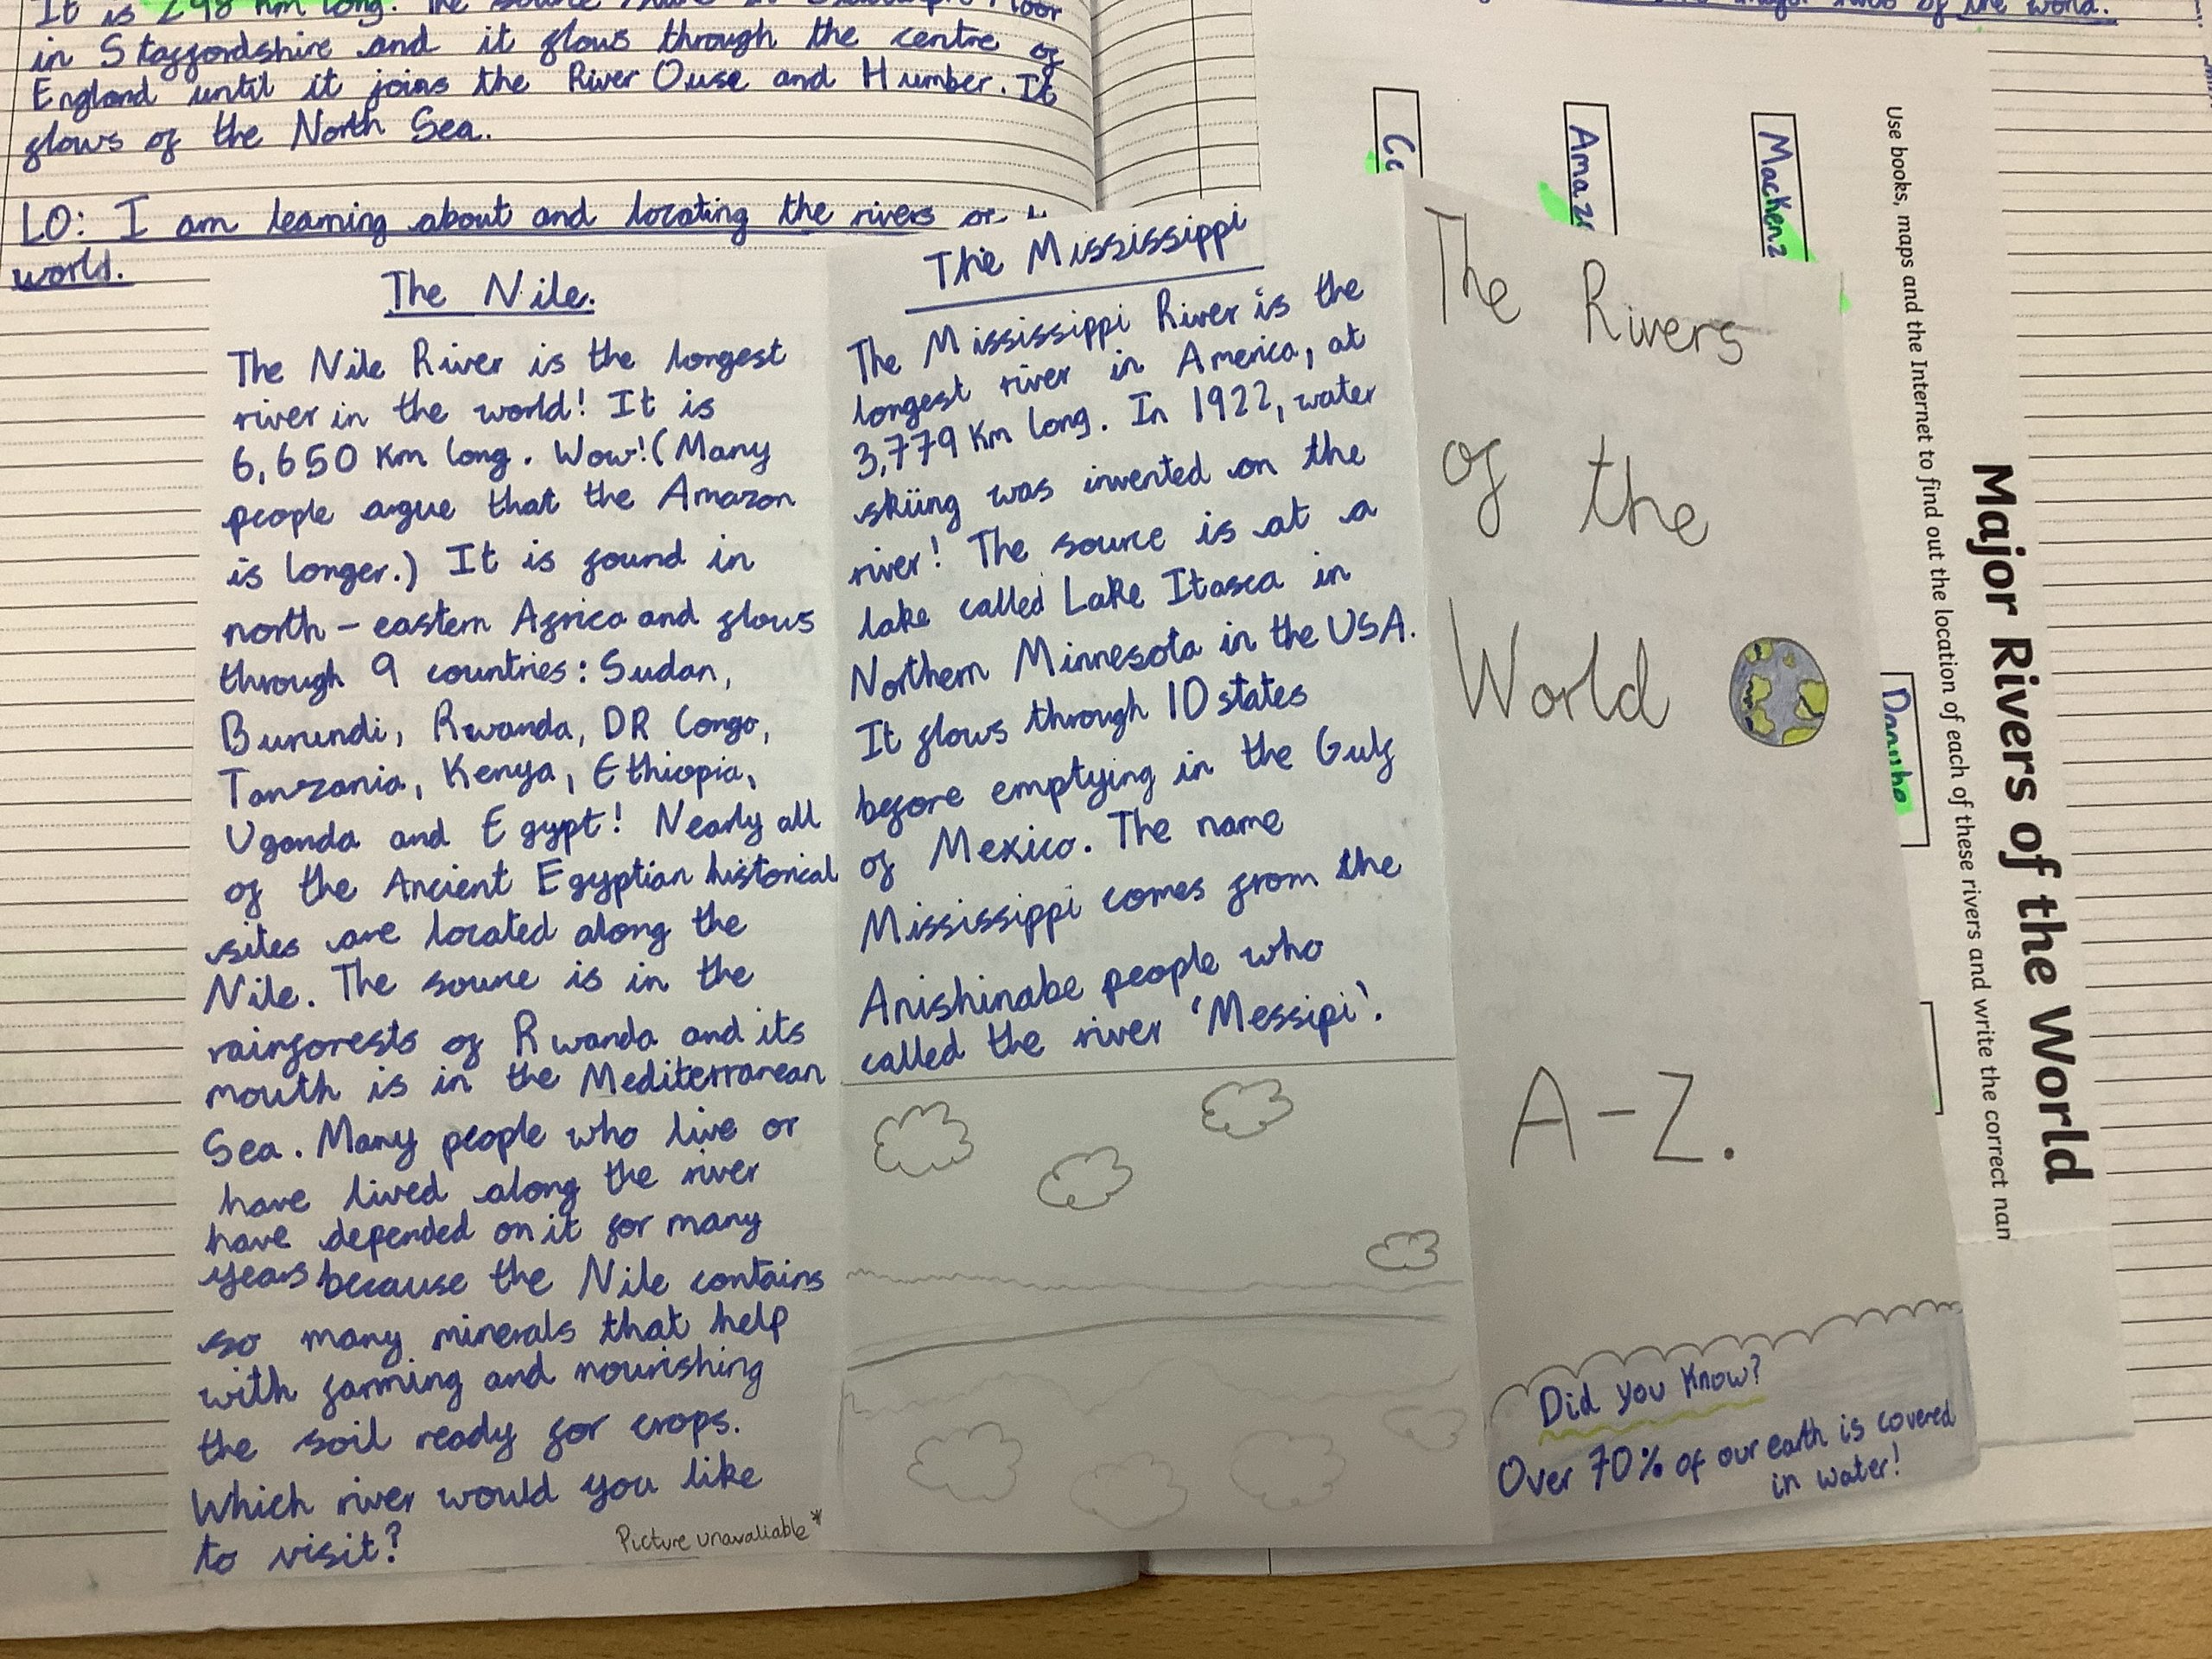 It is 298 km long. The source
in Staffordshire and it flows through the centre of
England until it joins the River Ouse and Humber. It
flows of the North Sea.
LO: I am learning about and locating the rivers
world.
The Nile.
The Nile River is the longest
river in the world! It is
6,650 km long. Wow! (Many
people argue that the Amazon
is longer.) It is found in
north-eastern Africa and flows
through 9 countries: Sudan,
Burundi, Rwanda, DR Congo,
Tanzania, Kenya, Ethiopia,
Uganda and Egypt! Nearly all
of the Ancient Egyptian historical
sites are located along the
Nile. The source is in the
rainforests of Rwanda and its
mouth is in the Mediterranean
Sea. Many people who live or
have lived along the river
have depended on it for many
years because the Nile contains
so many minerals that help
with farming and nourishing
the soil ready for crops.
Which river would you like
to visit?
Picture unavaliable*
The Mississippi
The Mississippi River is the
longest river in America, at
3,779 km long. In 1922, water
skiing was invented on the
river! The source is at a
lake called Lake Itasca in
Northern Minnesota in the USA.
It flows through 10 states
before emptying in the Gulf
of Mexico. The name
Mississippi comes from the
Anishinabe people who
called the river 'Messipi'.
The Rivers
of the
World
A-Z.
Did you know?
Over 70% of our earth is covered
in water!
of the world.
Major Rivers of the World
Use books, maps and the Internet to find out the location of each of these rivers and write the correct nan
Mackenz
Amaz
Danube